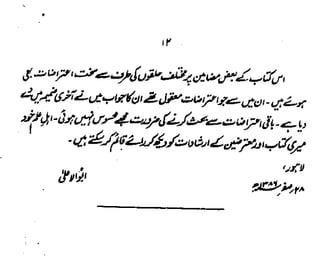 ۱۲
اس کتاب کے بعض مضامین پر مختلف حلقوں کی طرف سے سخت اعتراضات بھی
ہوئے ہیں۔ ان میں سے جو اعتراضات معقول تھے ان کا جواب میں نے آخری ضمیمہ میں دے
دیا ہے۔ باقی اعتراضات سے بحث کرنے کی ضرورت مجھے محسوس نہیں ہوئی۔ اہلِ علم خود
میری کتاب اور معترضین کے ارشادات کو دیکھ کر رائے قائم کر سکتے ہیں۔
لاہور،
۲۸ صفر ۱۳۸۶ھ
ابوالاعلیٰ